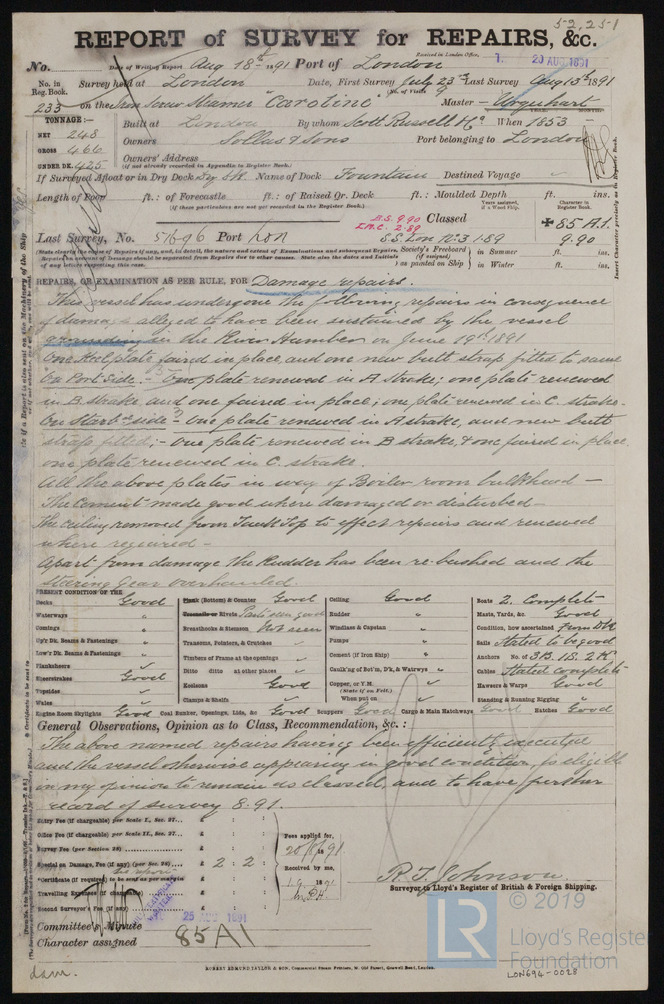 52,251
REPORT of SURVEY for REPAIRS, &c.
Received in London Office, 20 AUG 1891
No. Date of Writing Report Aug 18th 1891 Port of London
No. in Reg. Book. Survey held at London Date, First Survey July 23rd Last Survey Aug 13th 1891
(No. of Visits 9
233 on the Iron Screw Steamer "Caroline" Master Urquhart
TONNAGE:—
NET 248
GROSS 466
UNDER DK. 425
Built at London By whom Scott Russell & Co When 1853
Owners Sollas & Sons Port belonging to London
Owners' Address
(if not already recorded in Appendix to Register Book.)
If Surveyed Afloat or in Dry Dock Dry Dk Name of Dock Fountain Destined Voyage
Length of Poop ft.: of Forecastle ft.: of Raised Qr. Deck ft.: Moulded Depth ft. ins.
(If these particulars are not yet recorded in the Register Book.)
Years assigned, if a Wood Ship. Character in Register Book.
B.S. 9.90
L.M.C. 2.89 Classed 85 A.1.
Last Survey, No. 51696 Port Lon S.S. Lon No. 3 1.89 9.90
Society's Freeboard (if assigned) as painted on Ship in Summer ft. ins.
in Winter ft. ins.
REPAIRS, OR EXAMINATION AS PER RULE, FOR Damage repairs.
This vessel has undergone the following repairs in consequence
of damage alleged to have been sustained by the vessel
grounding in the River Humber on June 19th 1891
One Keel plate faired in place, and one new butt strap fitted to same
On Port Side - One plate renewed in A strake; one plate renewed
in B strake and one faired in place; one plate renewed in C. strake.
On Starbd side - One plate renewed in A strake, and new butt
strap fitted; - one plate renewed in B strake, & one faired in place
one plate renewed in C. strake.
All the above plates in way of Boiler room bulkhead -
The Cement made good where damaged or disturbed -
The ceiling removed from Tank Top to effect repairs and renewed
where required -
Apart from damage the Rudder has been re-bushed and the
Steering Gear overhauled.
PRESENT CONDITION OF THE
Decks Good
Waterways "
Comings "
Up'r Dk. Beams & Fastenings "
Low'r Dk. Beams & Fastenings
Planksheers
Sheerstrakes Good
Topsides
Wales
Engine Room Skylights Good
Plank (Bottom) & Counter Good
Treenails or Rivets Parts seen good
Breasthooks & Stemson Not seen
Transoms, Pointers, & Crutches
Timbers of Frame at the openings
Ditto ditto at other places
Keelsons Good
Clamps & Shelfs
Coal Bunker, Openings, Lids, &c Good
Ceiling Good
Rudder "
Windlass & Capstan "
Pumps "
Cement (if Iron Ship) "
Caulk'ng of Bot'm, D'k, & Watrwys "
Copper, or Y.M.
(State if on Felt.)
When put on
Scuppers Good Cargo & Main Hatchways Good Hatches Good
Boats 2. Complete
Masts, Yards, &c. Good
Condition, how ascertained From Dk
Sails Stated to be good
Anchors No. of 3B. 1S. 2K
Cables Stated complete
Hawsers & Warps Good
Standing & Running Rigging "
General Observations, Opinion as to Class, Recommendation, &c.:
The above named repairs having been efficiently executed
and the vessel otherwise appearing in good condition, is eligible
in my opinion to remain as classed, and to have further
record of survey 8.91.
Entry Fee (if chargeable) per Scale I., Sec. 27... £ : :
Office Fee (if chargeable) per Scale II., Sec. 27... £ : :
Survey Fee (per Section 28) £ : :
Special on Damage, Fee (if any) (per Sec. 28) £ 2 : 2 :
Certificate (if required) to be sent as per margin
Travelling Expenses (if chargeable) £ : :
Second Surveyor's Fee (if any) £ : :
Fees applied for,
20/8/91
Received by me,
R. T. Johnson
Surveyor to Lloyd's Register of British & Foreign Shipping.
Committee's Minute 25 AUG 1891
Character assigned 85 A1
ROBERT EDMUND TAYLOR & SON, Commercial Steam Printers, 19, Old Street, Goswell Road, London.
© 2019
LR Lloyd's Register
Foundation
LON694-0028